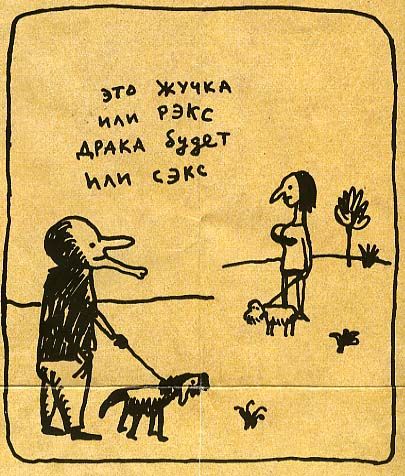 ЭТО ЖУЧКА
ИЛИ РЭКС
ДРАКА будет
ИЛИ СЭКС